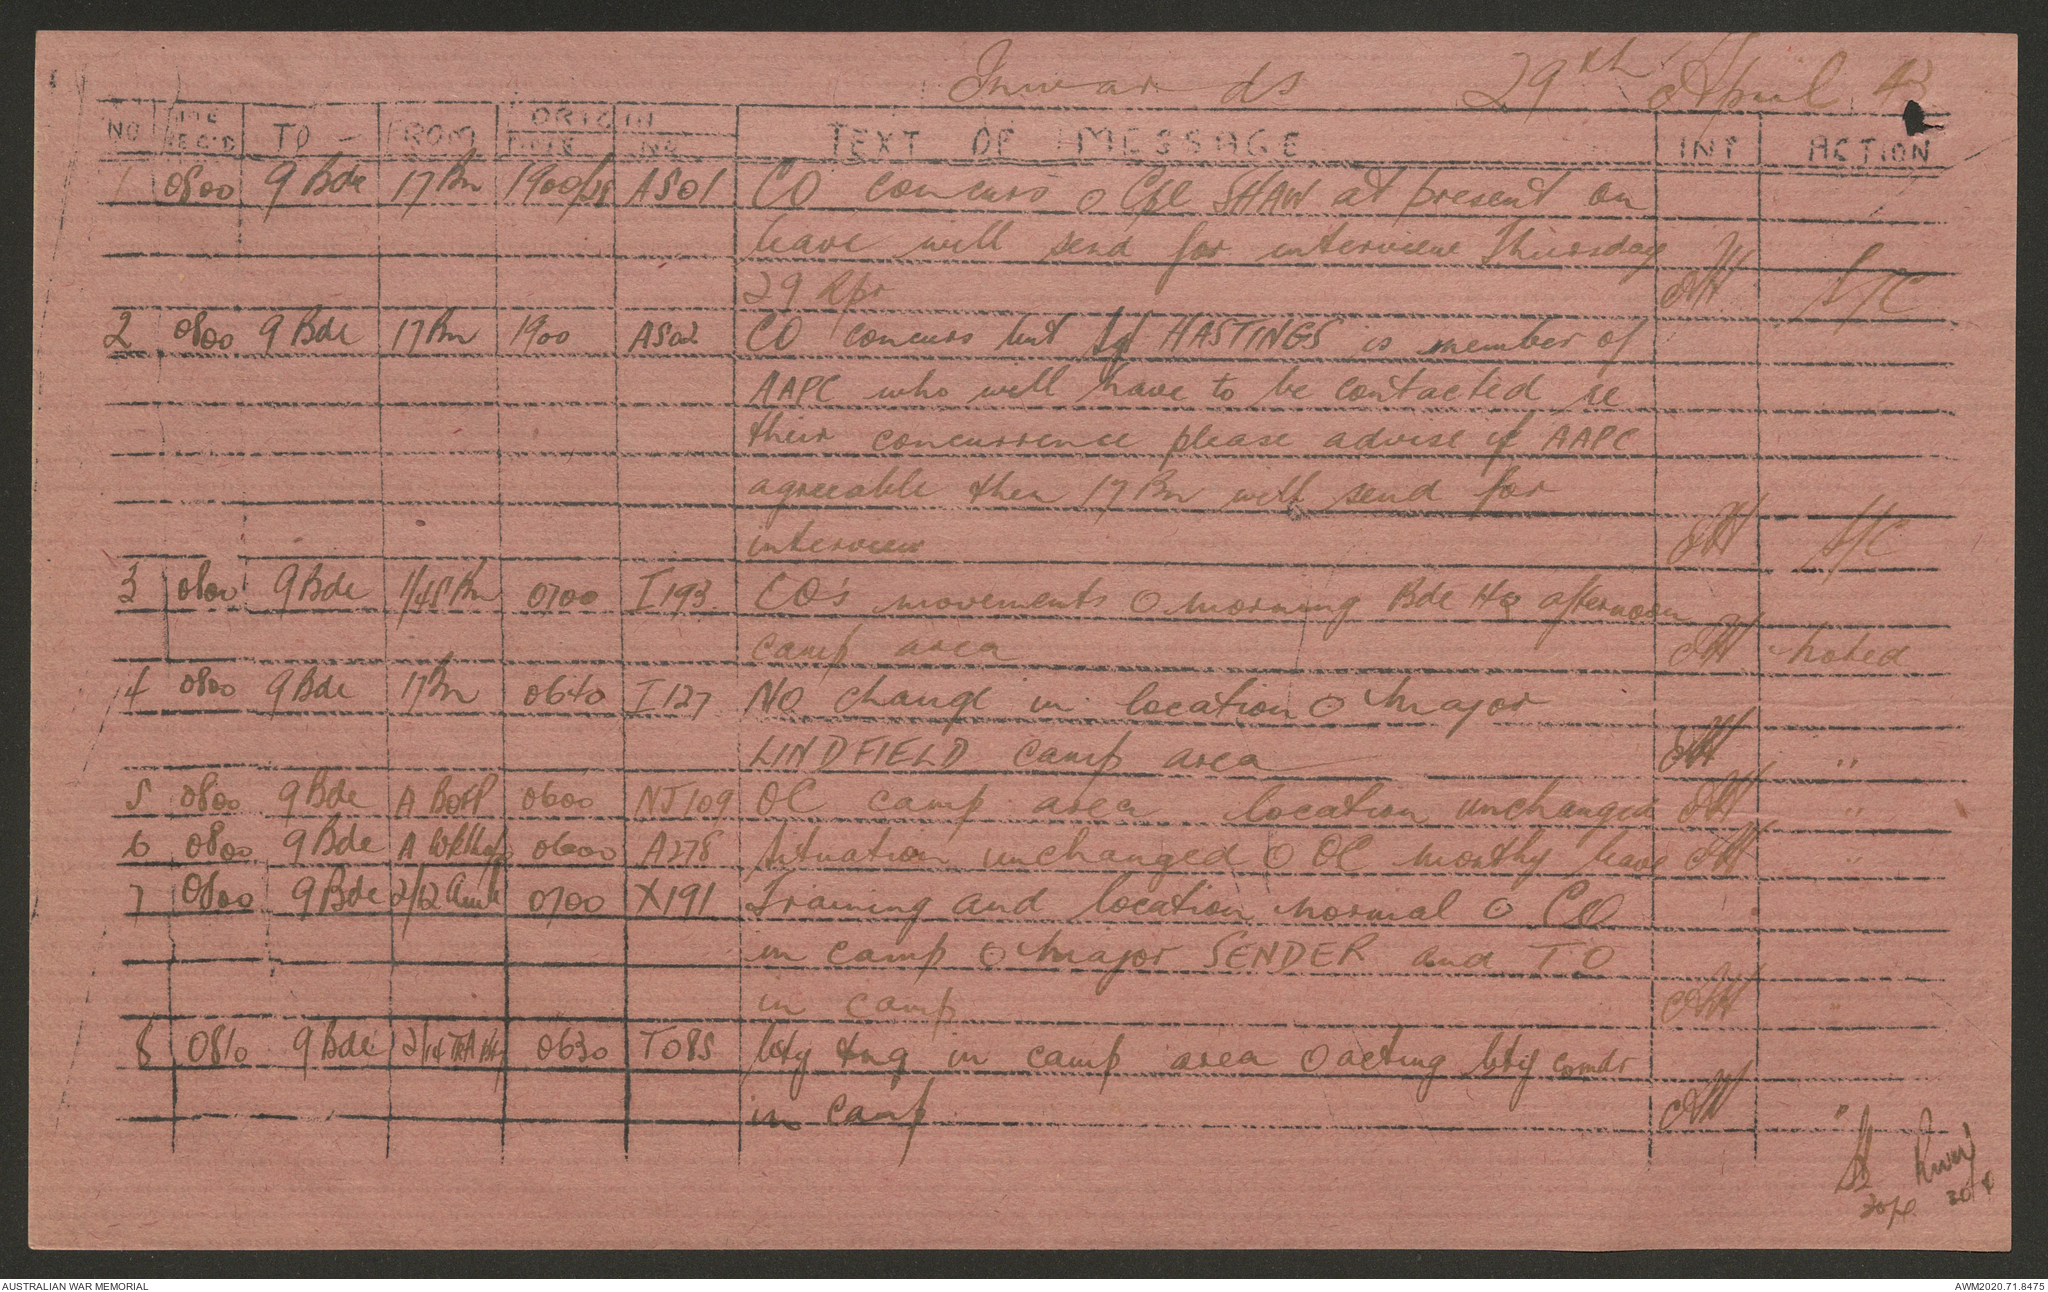 Inwards 29th April 43
NO TME REC'D TO FROM ORIGIN TEXT OF MESSAGE INT ACTION
NO
1 0800 9 Bde 17 Bn 1900/28 AS01 CO concurs o Cpl SHAW at present on
leave will send for interview Thursday
29 Apr S/C
2 0800 9 Bde 17 Bn 1900 AS02 CO concurs but Sgt HASTINGS is member of
AAPC who will have to be contacted re
their concurrence please advise if AAPC
agreeable then 17 Bn will send for
interview S/C
3 0800 9 Bde 1/45 Bn 0700 I 193 CO's movements o morning Bde HQ afternoon
camp area noted
4 0800 9 Bde 17 Bn 0640 I 127 No change in location o Major
LINDFIELD camp area "
5 0800 9 Bde A 0600 NJ109 OC camp area location unchanged "
6 0800 9 Bde A Wkshops 0600 A278 Situation unchanged o OC monthly leave "
7 0800 9 Bde 2/12 Amb 0700 X191 Training and location normal o CO
in camp o Major SENDER and T O
in camp "
8 0810 9 Bde 2/14 0630 T085 bty tng in camp area o acting bty comdr
in camp "
30/4 30/4
AUSTRALIAN WAR MEMORIAL AWM2020.71.8475